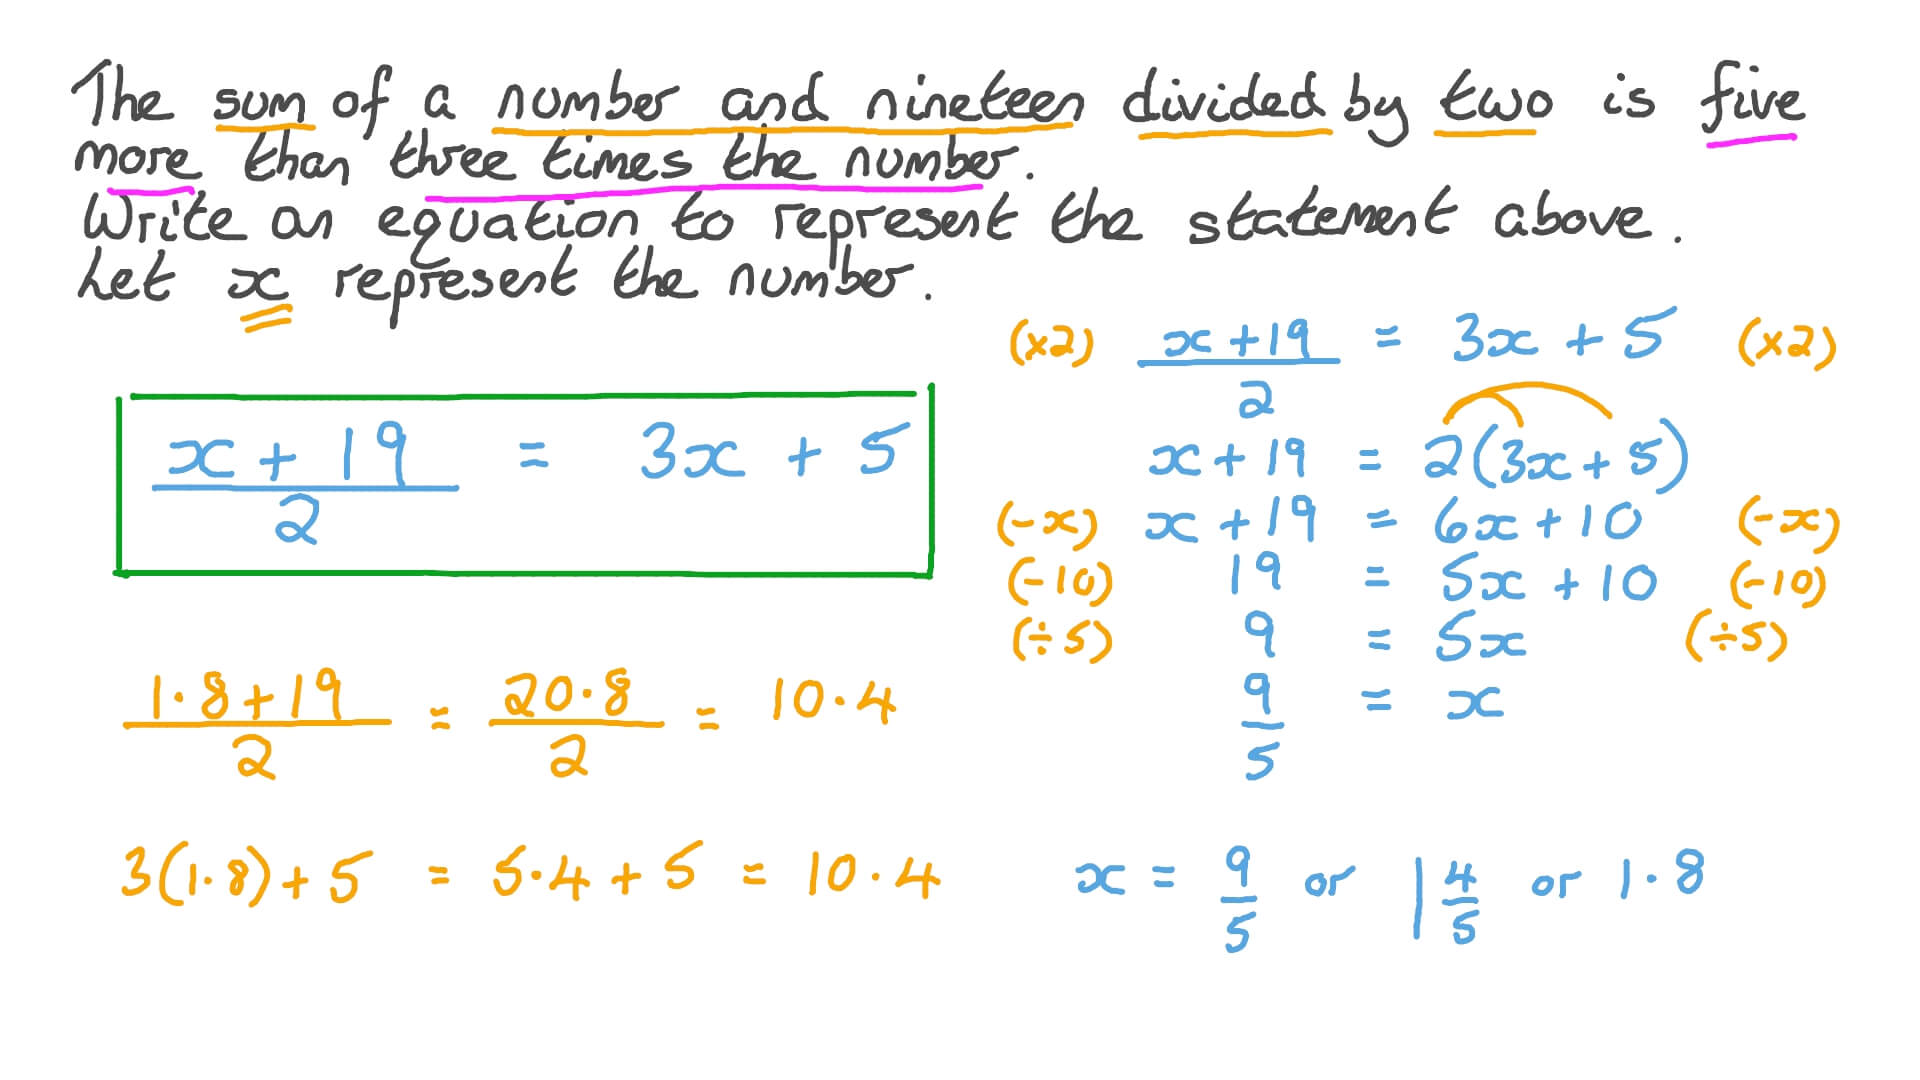 The sum of a number and nineteen divided by two is five
more than three times the number.
Write an equation to represent the statement above.
Let x represent the number.
(x+19)/2 = 3x + 5
(×2) (x+19)/2 = 3x + 5 (×2)
x + 19 = 2(3x + 5)
(-x) x + 19 = 6x + 10 (-x)
(-10) 19 = 5x + 10 (-10)
(÷5) 9 = 5x (÷5)
9/5 = x
(1·8+19)/2 = 20·8/2 = 10·4
3(1·8) + 5 = 5·4 + 5 = 10·4
x = 9/5 or 1 4/5 or 1·8